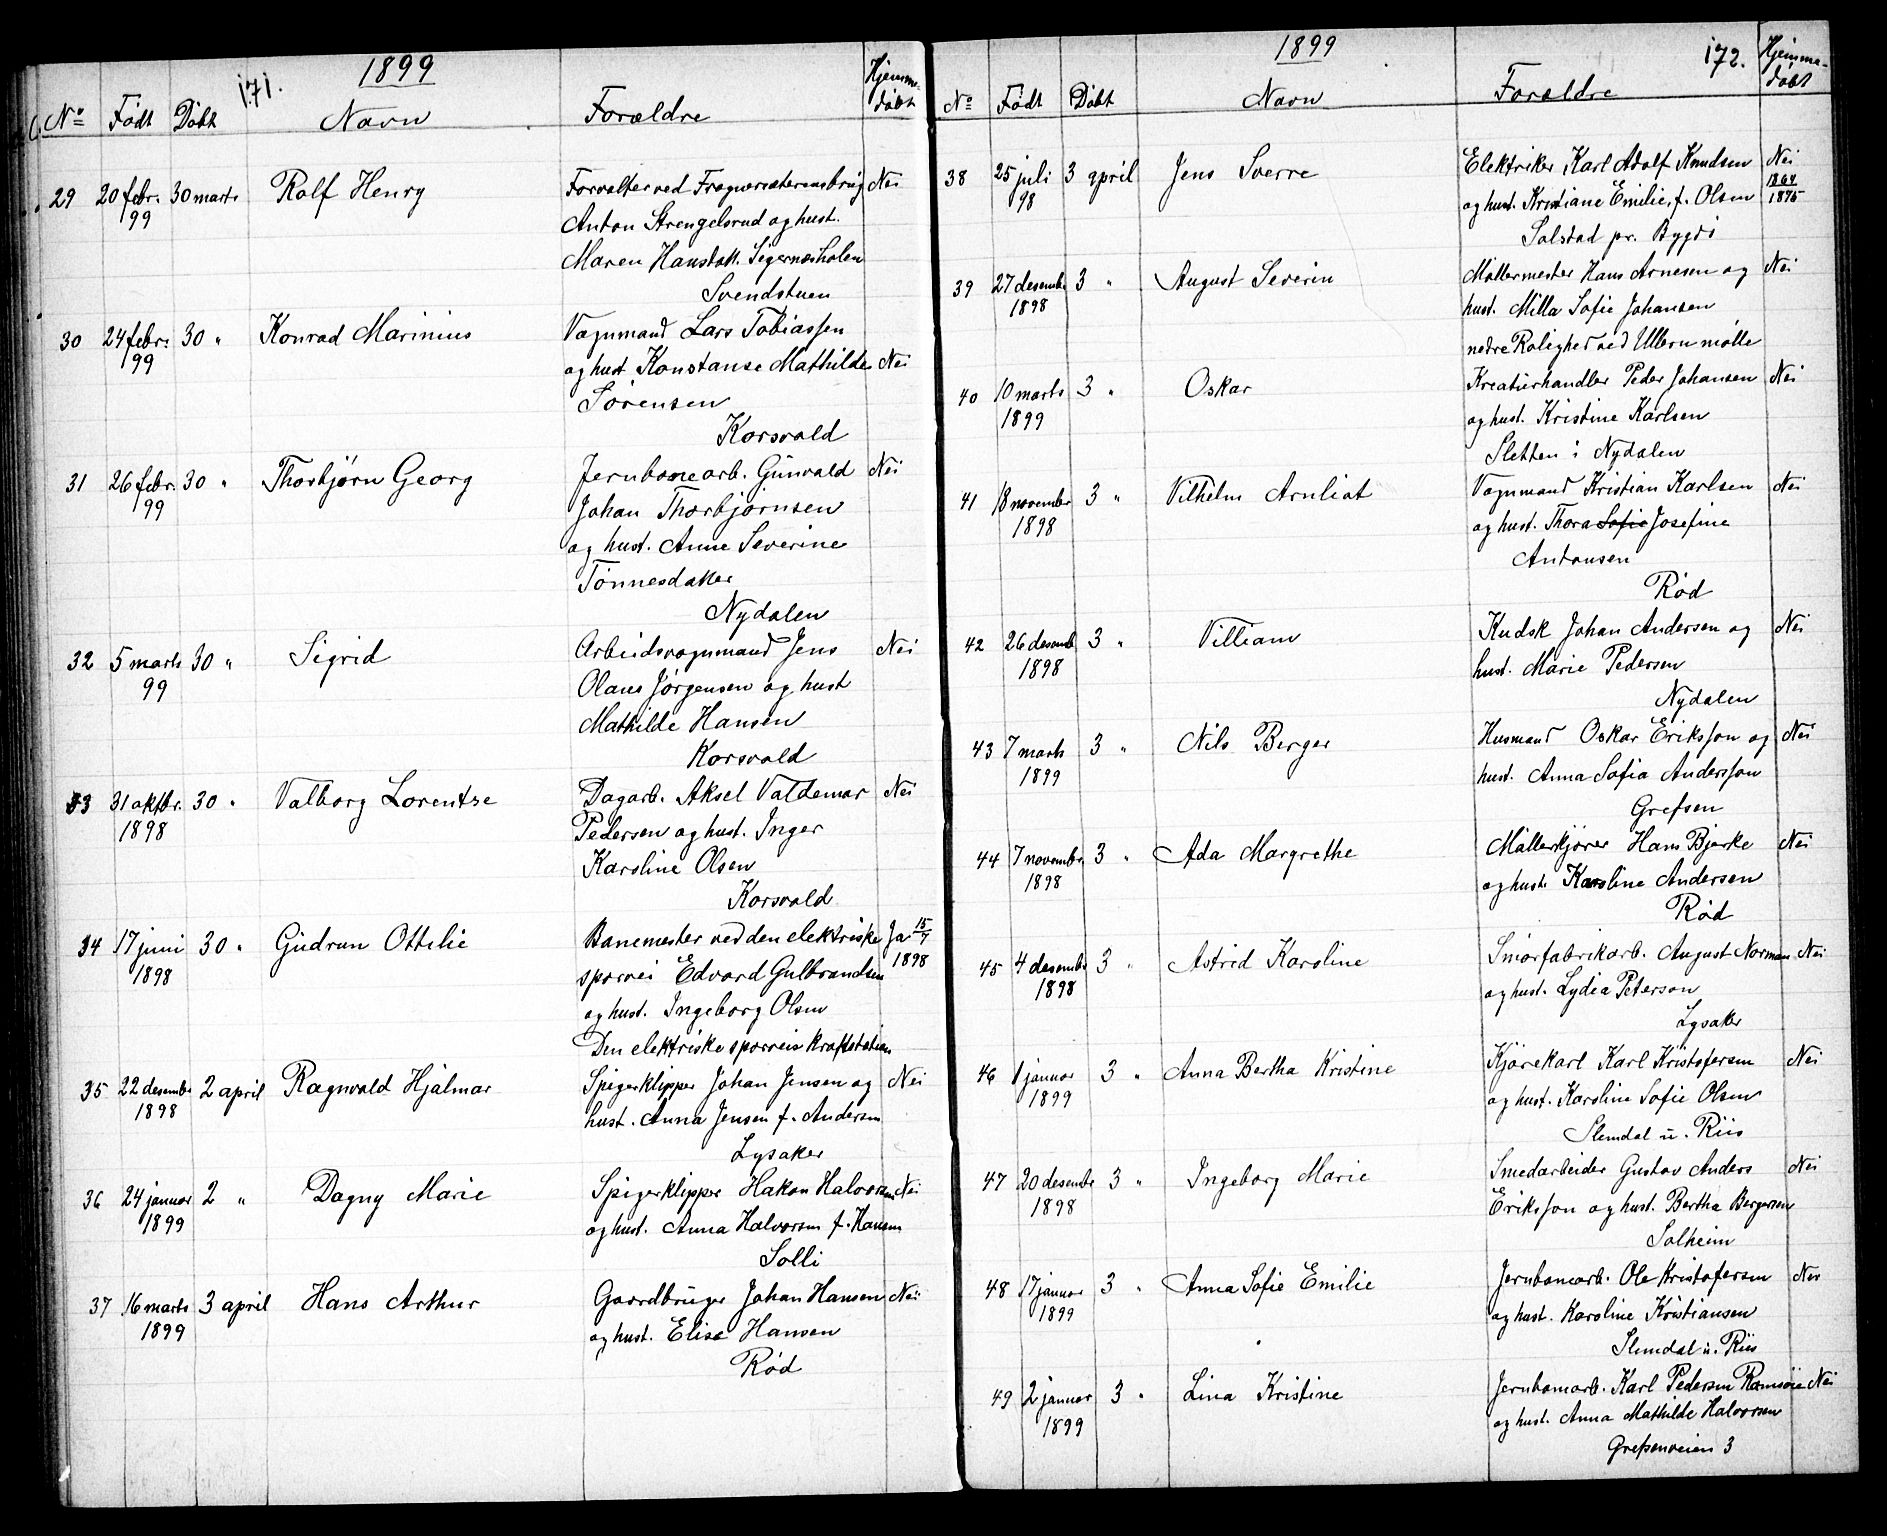 171.
1899
No Født Døbt Navn Forældre Hjemmedøbt
29 20 febr. 99 30 marts Rolf Henry Forvalter ved Frognersæterens brug Nei
Anton Strengelsrud og hust.
Maren
Svendstuen
30 24 febr. 99 30 " Konrad Marinius Vognmand Lars Tobiassen
og hust Konstanse Mathilde Nei
Sørensen
Korsvold
31 26 febr. 99 30 " Thorbjørn Georg Jernbanearb. Gunvald Nei
Johan Thorbjørnsen
og hust. Anne Severine
Tønnesdatter
Nydalen
32 5 marts 99 30 " Sigrid Arbeidsvognmand Jens Nei
Olaus Jørgensen og hust
Mathilde Hansen
Korsvold
33 31 oktbr. 1898 30 " Valborg Lorentse Dagarb. Aksel Valdemar Nei
Pedersen og hust. Inger
Karoline Olsen
Korsvold
34 17 juni 1898 30 " Gudrun Ottilie Banemester ved den elektriske Ja 15/7 1898
sporvei Edvard Gulbrandsen
og hust. Ingeborg Olsen
Den elektriske sporveis kraftstation
35 22 desembr 1898 2 april Ragnvald Hjalmar Spigerklipper Johan Jensen og Nei
hust. Anna Jensen f. Andersen
Lysaker
36 24 januar 1899 2 " Dagny Marie Spigerklipper Hakon Halvorsen Nei
og hust. Anna Halvorsen f. Hansen
Solli
37 16 marts 1899 3 april Hans Arthur Gaardbruger Johan Hansen Nei
og hust. Elise Hansen
Rød
1899
172.
No Født Døbt Navn Forældre Hjemmedøbt
38 25 juli 98 3 april Jens Sverre Elektriker Karl Adolf Knudsen Nei
og hust. Kristiane Emilie, f. Olsen 1864 1875
Solstad pr. Bygdø
39 27 desembr 1898 3 " August Severin Møllermester Hans Arnesen og Nei
hust. Milla Sofie Johansen
nedre Rolighed ved Ullern mølle
40 10 marts 1899 3 " Oskar Kreaturhandler Peder Johansen Nei
og hust. Kristine Karlsen
Sletten i Nydalen
41 18 november 1898 3 " Vilhelm Arnliot Vognmand Kristian Karlsen Nei
og hust. Thora Sofie Josefine
Antonsen
Rød
42 26 desemb 1898 3 " Villiam Kudsk Johan Andersen og Nei
hust. Marie Pedersen
Nydalen
43 7 marts 1899 3 " Nils Berger Husmand Oskar Eriksson og Nei
hust. Anna Sofia Andersson
Grefsen
44 7 novembr 1898 3 " Ada Margrethe Møllerkjører Hans Bjerke Nei
og hust. Karoline Andersen
Rød
45 4 desembr 1898 3 " Astrid Karoline Smørfabrikarb. August Norman Nei
og hust. Lydia Peterson
Lysaker
46 1 januar 1899 3 " Anna Bertha Kristine Kjørekarl Karl Kristofersen Nei
og hust. Karoline Sofie Olsen
Slemdal u. Riis
47 20 desembr 1898 3 " Ingeborg Marie Smedarbeider Gustav Anders Nei
Eriksson og hust. Bertha Bergersen
Solheim
48 17 januar 1899 3 " Anna Sofie Emilie Jernbanearb. Ole Kristofersen Nei
og hust. Karoline Kristiansen
Slemdal u. Riis
49 2 januar 1899 3 " Lina Kristine Jernbanearb. Karl Pedersen Ramsøie Nei
og hust. Anna Mathilde Halvorsen
Grefsenveien 3